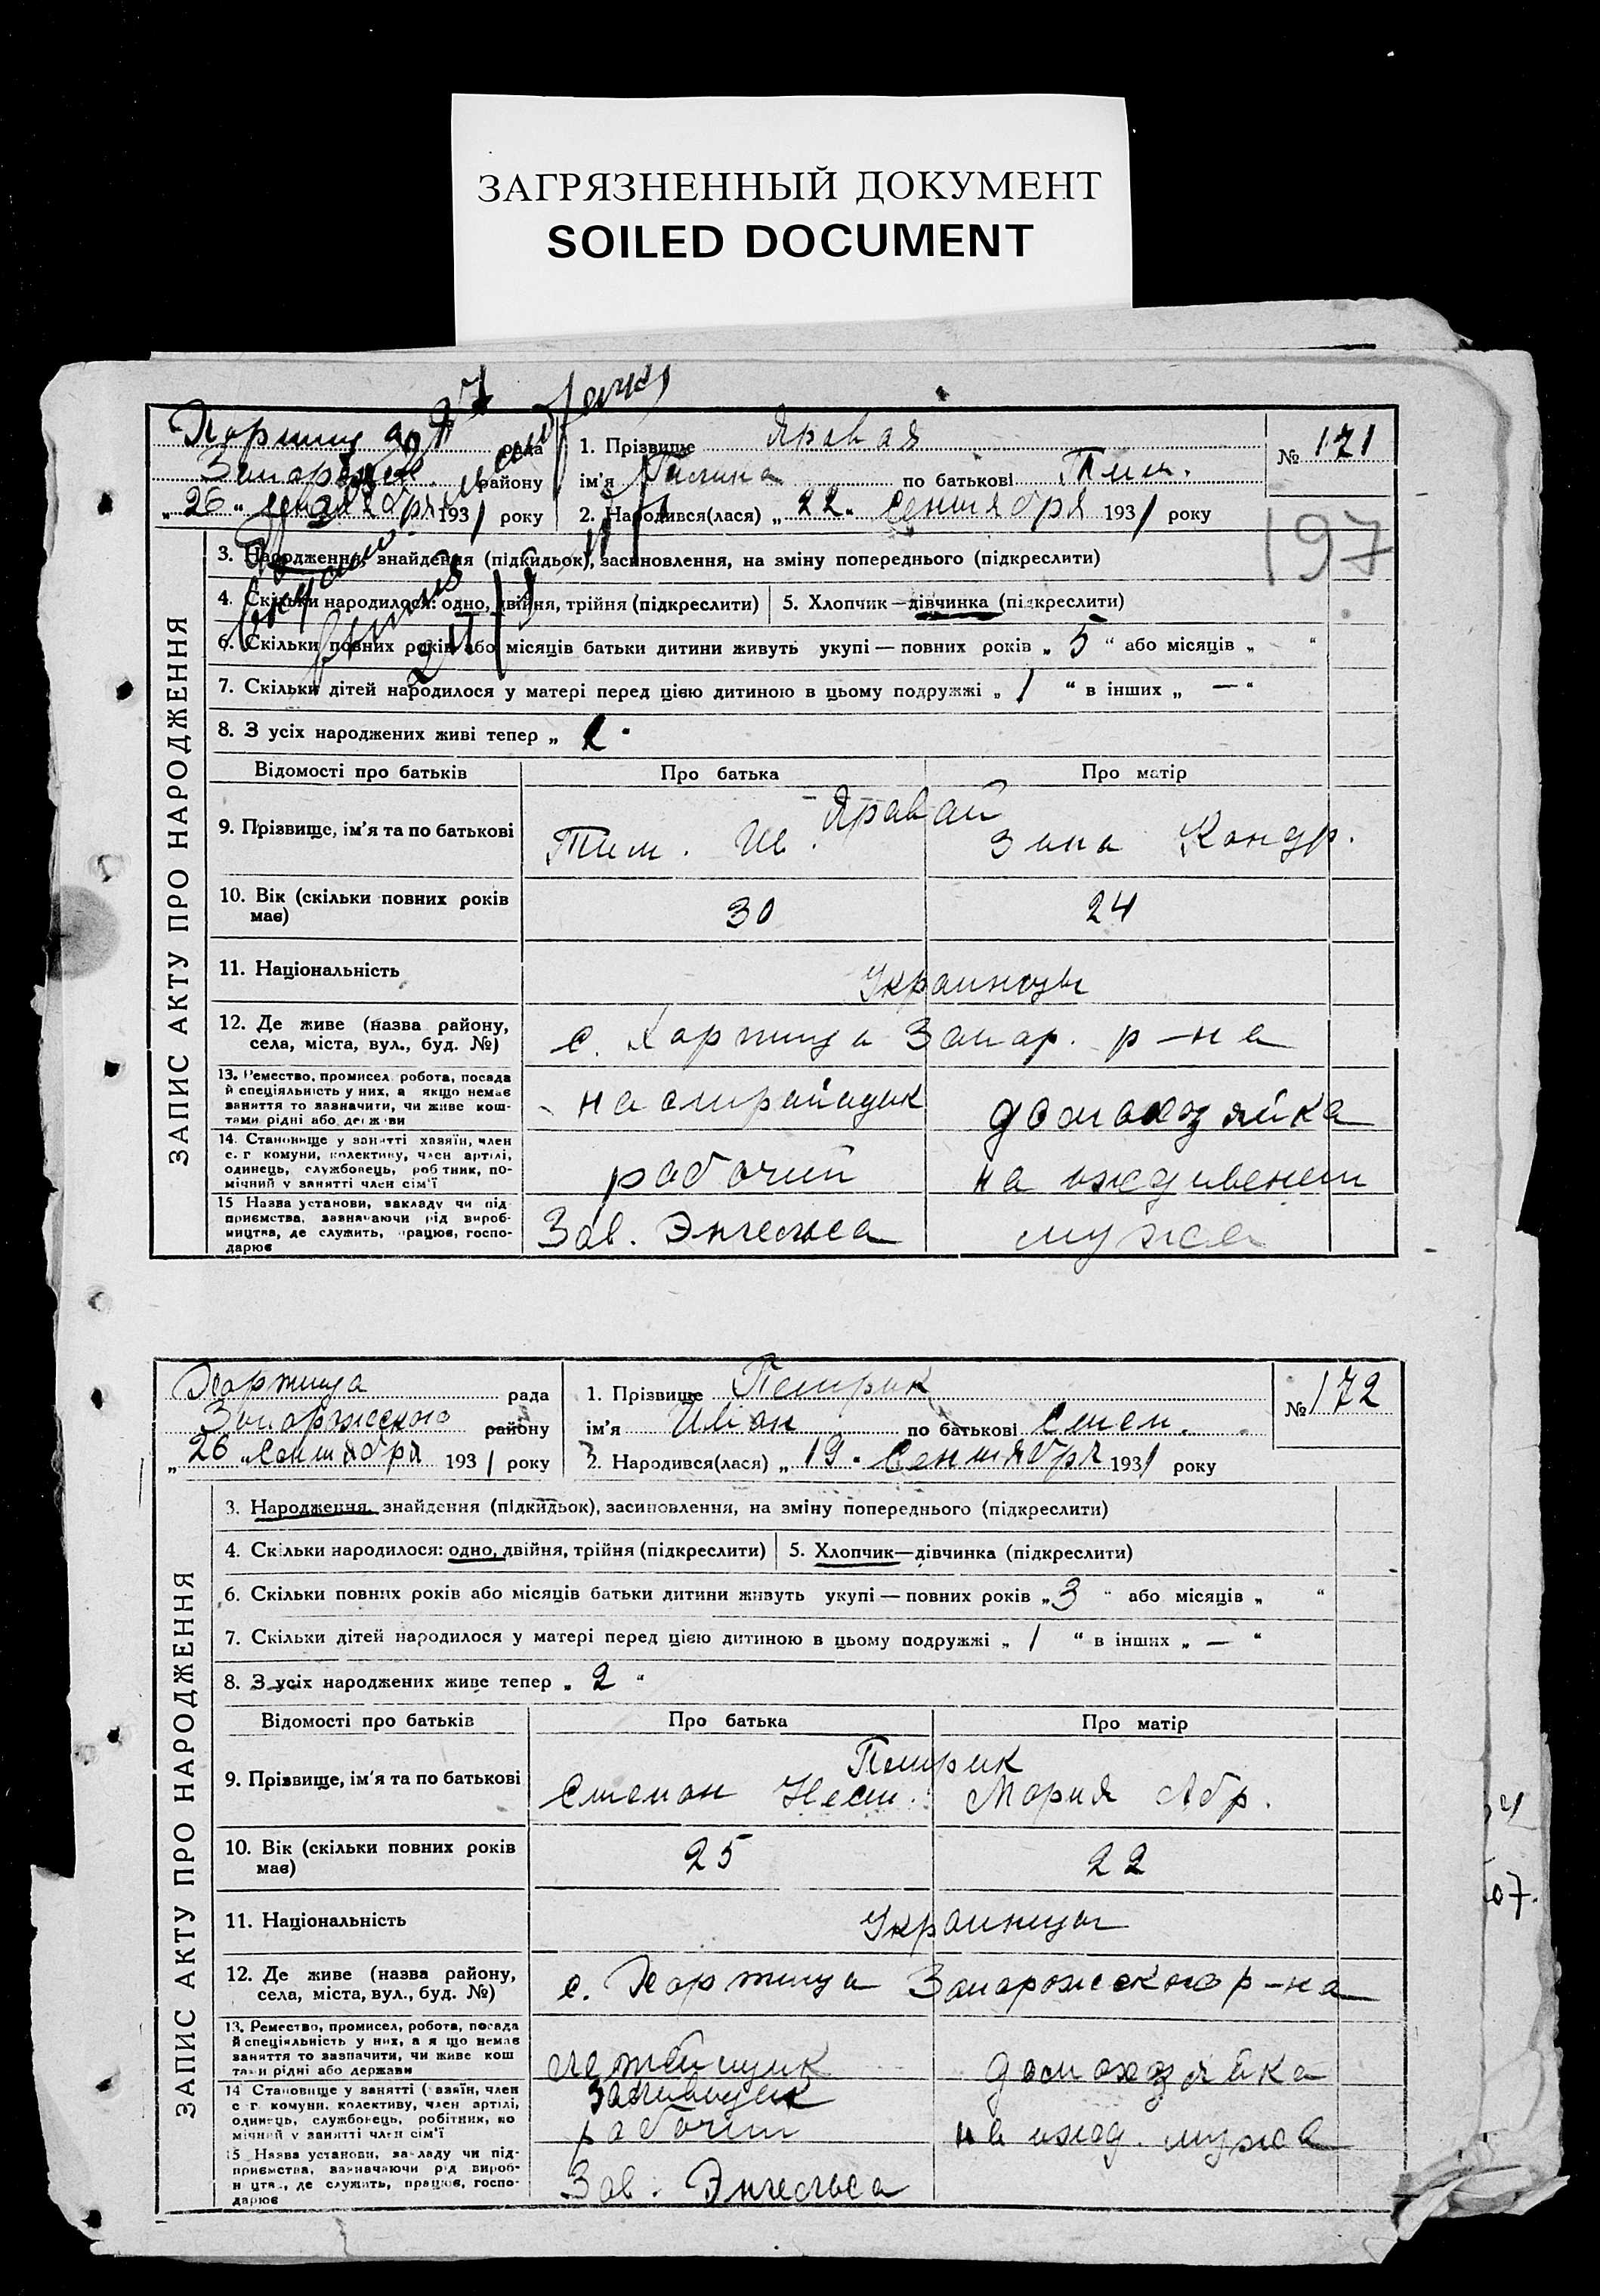 ЗАГРЯЗНЕННЫЙ ДОКУМЕНТ
SOILED DOCUMENT
Хортица рада
района району
„26“ сентября 1931 року
1. Прізвище Яровая
ім'я Галина по батькові Тим.
2. Народився(лася) „22. Сентября 1931 року
№ 171
197
ЗАПИС АКТУ ПРО НАРОДЖЕННЯ
3. Народження, знайдення (підкидьок), засиновлення, на зміну попереднього (підкреслити)
4. Скільки народилося: одно, двійня, трійня (підкреслити) 5. Хлопчик—дівчинка (підкреслити)
6. Скільки повних років або місяців батьки дитини живуть укупі — повних років „5“ або місяців „ “
7. Скільки дітей народилося у матері перед цією дитиною в цьому подружжі „1“ в інших „—“
8. З усіх народжених живі тепер „2“
Відомості про батьків Про батька Про матір
9. Прізвище, ім'я та по батькові
Тим. Ив. Зина Кондр.
10. Вік (скільки повних років має) 30 24
11. Національність Украинцы
12. Де живе (назва району, села, міста, вул., буд. №) с. Хортица Запор. р-на
13. Ремество, промисел, робота, посада й спеціяльність у них, а якщо немає заняття то зазначити, чи живе коштами рідні або держави
домохозяйка
14. Становище у занятті хазяїн, член с.г комуни, колективу, член артілі, одинець, службовець, робітник, помічний у занятті член сім'ї
рабочий на иждивении
15 Назва установи, закладу чи підприємства, зазначаючи рід виробництва, де служить, працює, господарює
Зав. Энгельса мужа
Хортица рада
Запорожского району
„26“ Сентября 1931 року
1. Прізвище Петрик
ім'я Иван по батькові Степ.
2. Народився(лася) „19. Сентября 1931 року
№ 172
ЗАПИС АКТУ ПРО НАРОДЖЕННЯ
3. Народження, знайдення (підкидьок), засиновлення, на зміну попереднього (підкреслити)
4. Скільки народилося: одно, двійня, трійня (підкреслити) 5. Хлопчик—дівчинка (підкреслити)
6. Скільки повних років або місяців батьки дитини живуть укупі — повних років „3“ або місяців „ “
7. Скільки дітей народилося у матері перед цією дитиною в цьому подружжі „1“ в інших „—“
8. З усіх народжених живе тепер „2“
Відомості про батьків Про батька Про матір
9. Прізвище, ім'я та по батькові Петрик
Степан Нест. Мария Абр.
10. Вік (скільки повних років має) 25 22
11. Національність Украинцы
12. Де живе (назва району, села, міста, вул., буд. №) с. Хортица Запорожского р-на
13. Ремество, промисел, робота, посада й спеціяльність у них, а якщо немає заняття то зазначити, чи живе коштами рідні або держави
домохозяйка
14 Становище у занятті (хазяїн, член с г комуни, колективу, член артілі, одинець, службовець, робітник, помічний у занятті член сім'ї
рабочий на ижд. мужа
15 Назва установи, закладу чи підприємства, зазначаючи рід виробництва, де служить, працює, господарює
Зав. Энгельса
07.